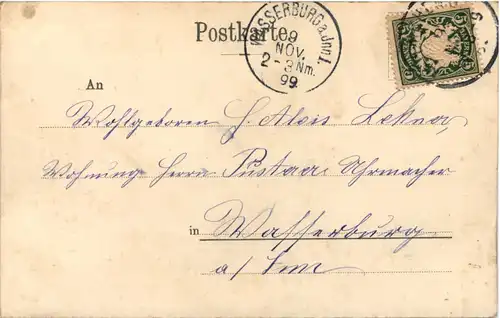 Postkarte.
WASSERBURG a. Inn I.
9
NOV.
2-3 Nm.
99.
5
An
Wohlgeboren H. Alois
Wohnung Herrn Pustaa Uhrmacher
in Wasserburg
a/Inn